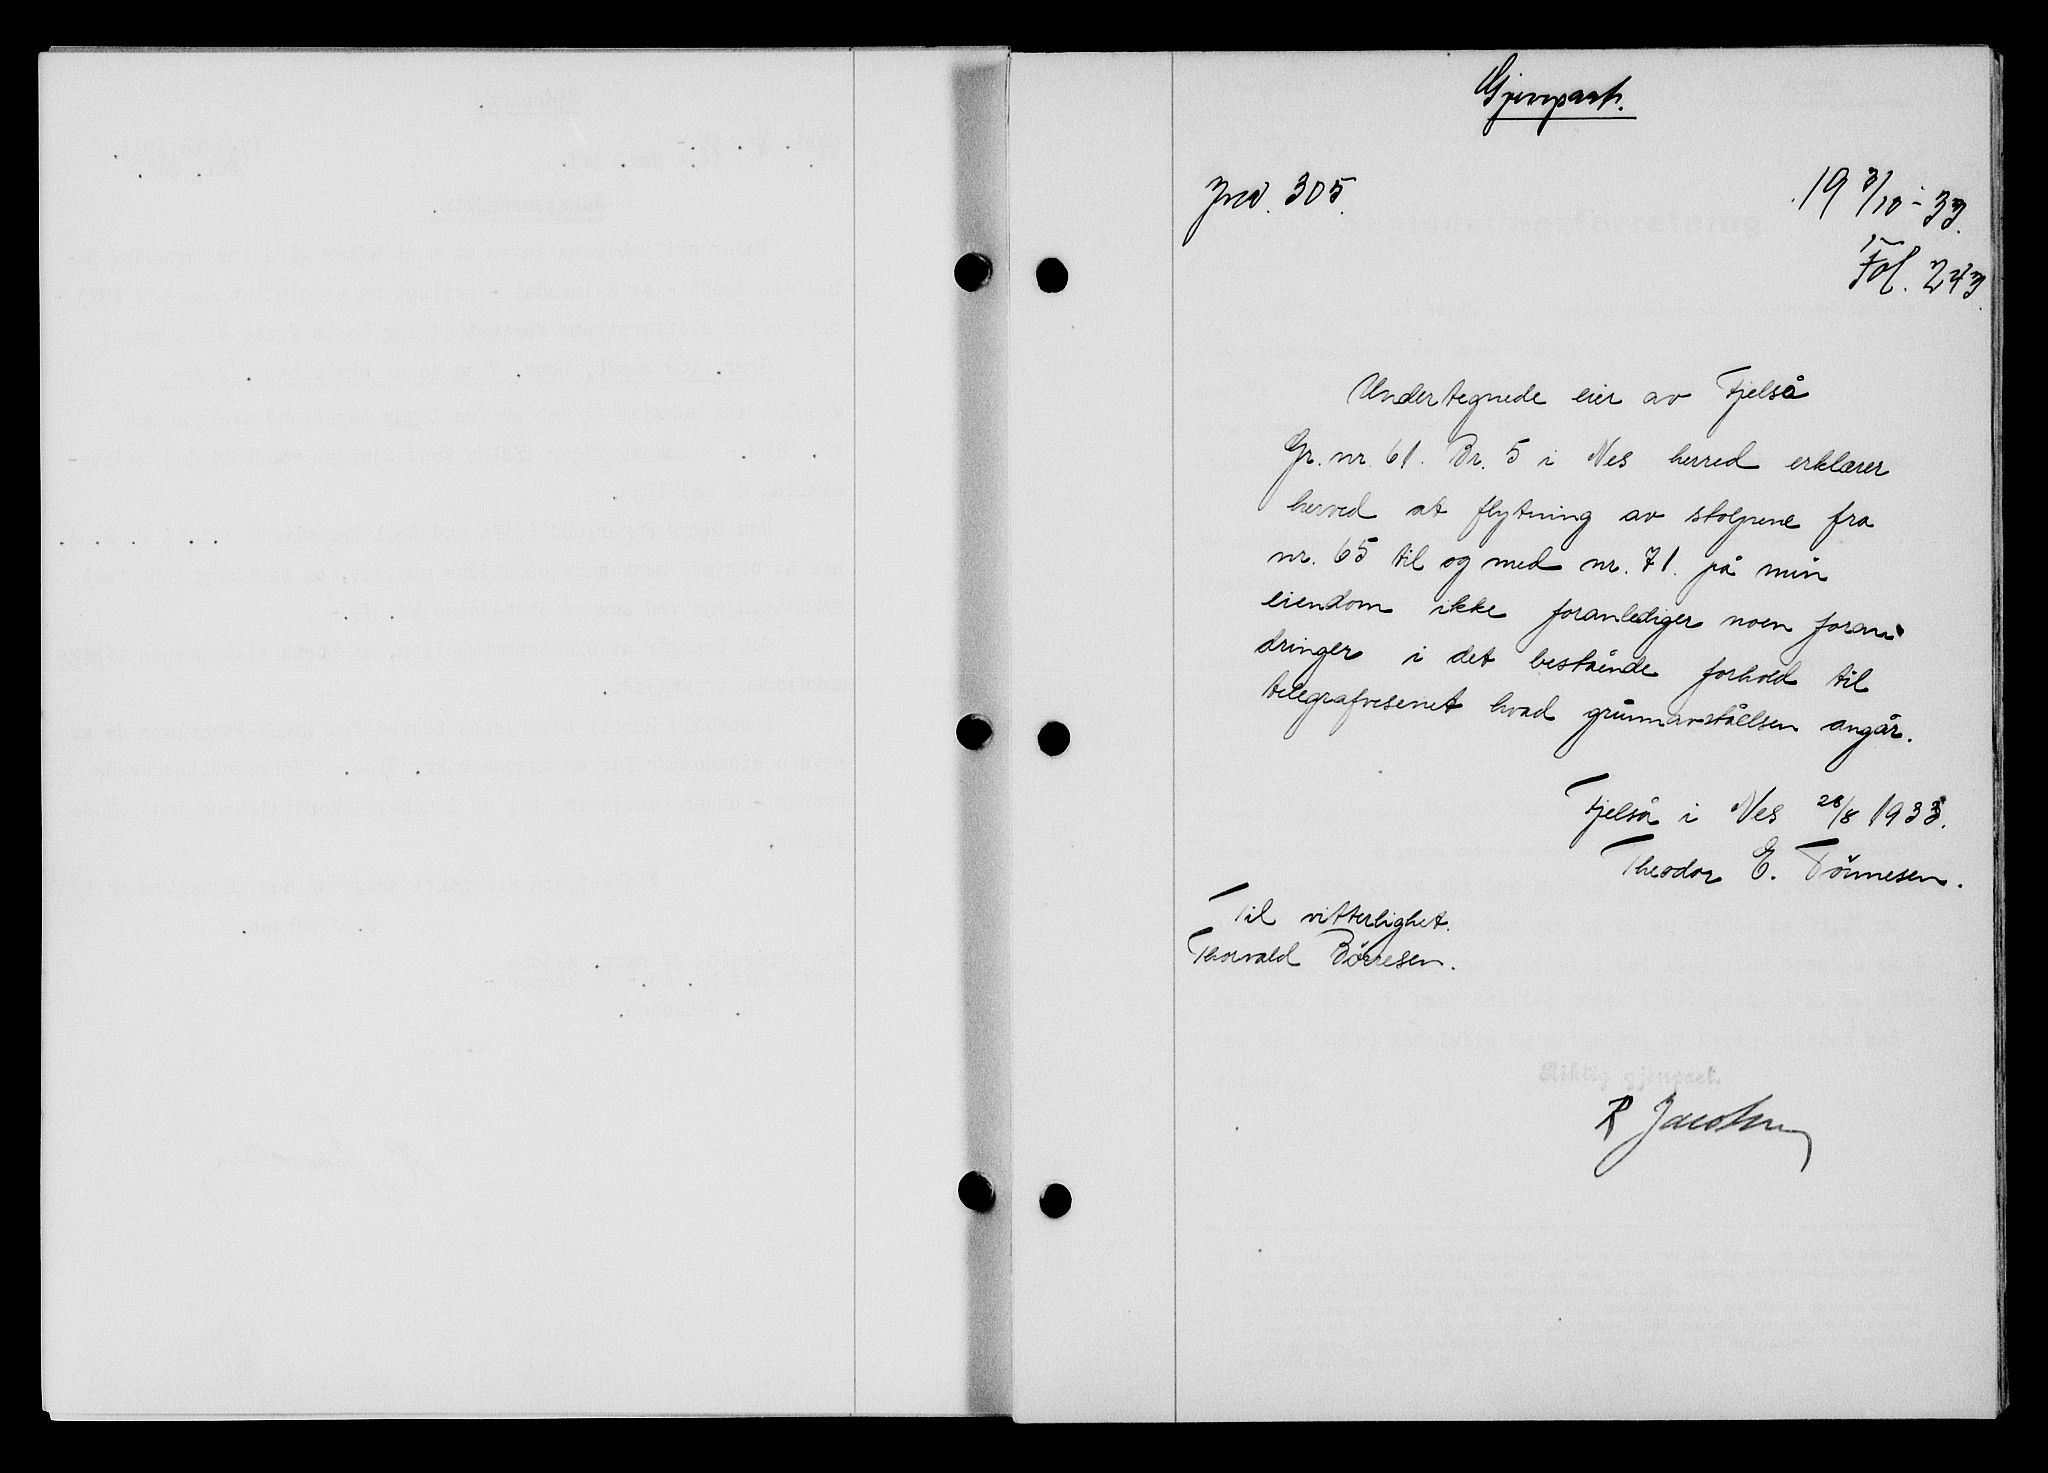 Gjenpart.
Jnr. 305.
19 3/10 - 33.
Fol. 243
Undertegnede eier av Fjelså
Gr. nr. 61. Br. 5 i Nes herred erklærer
herved at flytning av stolpene fra
nr. 65 til og med nr. 71. på min
eiendom ikke foranlediger noen foran
dringer i det bestående forhold til
telegrafvesenet hvad grunnavståelsen angår.
Fjelså i Nes 28/8 1933.
Theodor E. Tönnesen.
Til vitterlighet.
Thorvald Börresen.
Riktig gjenpart.
R Jacobsen